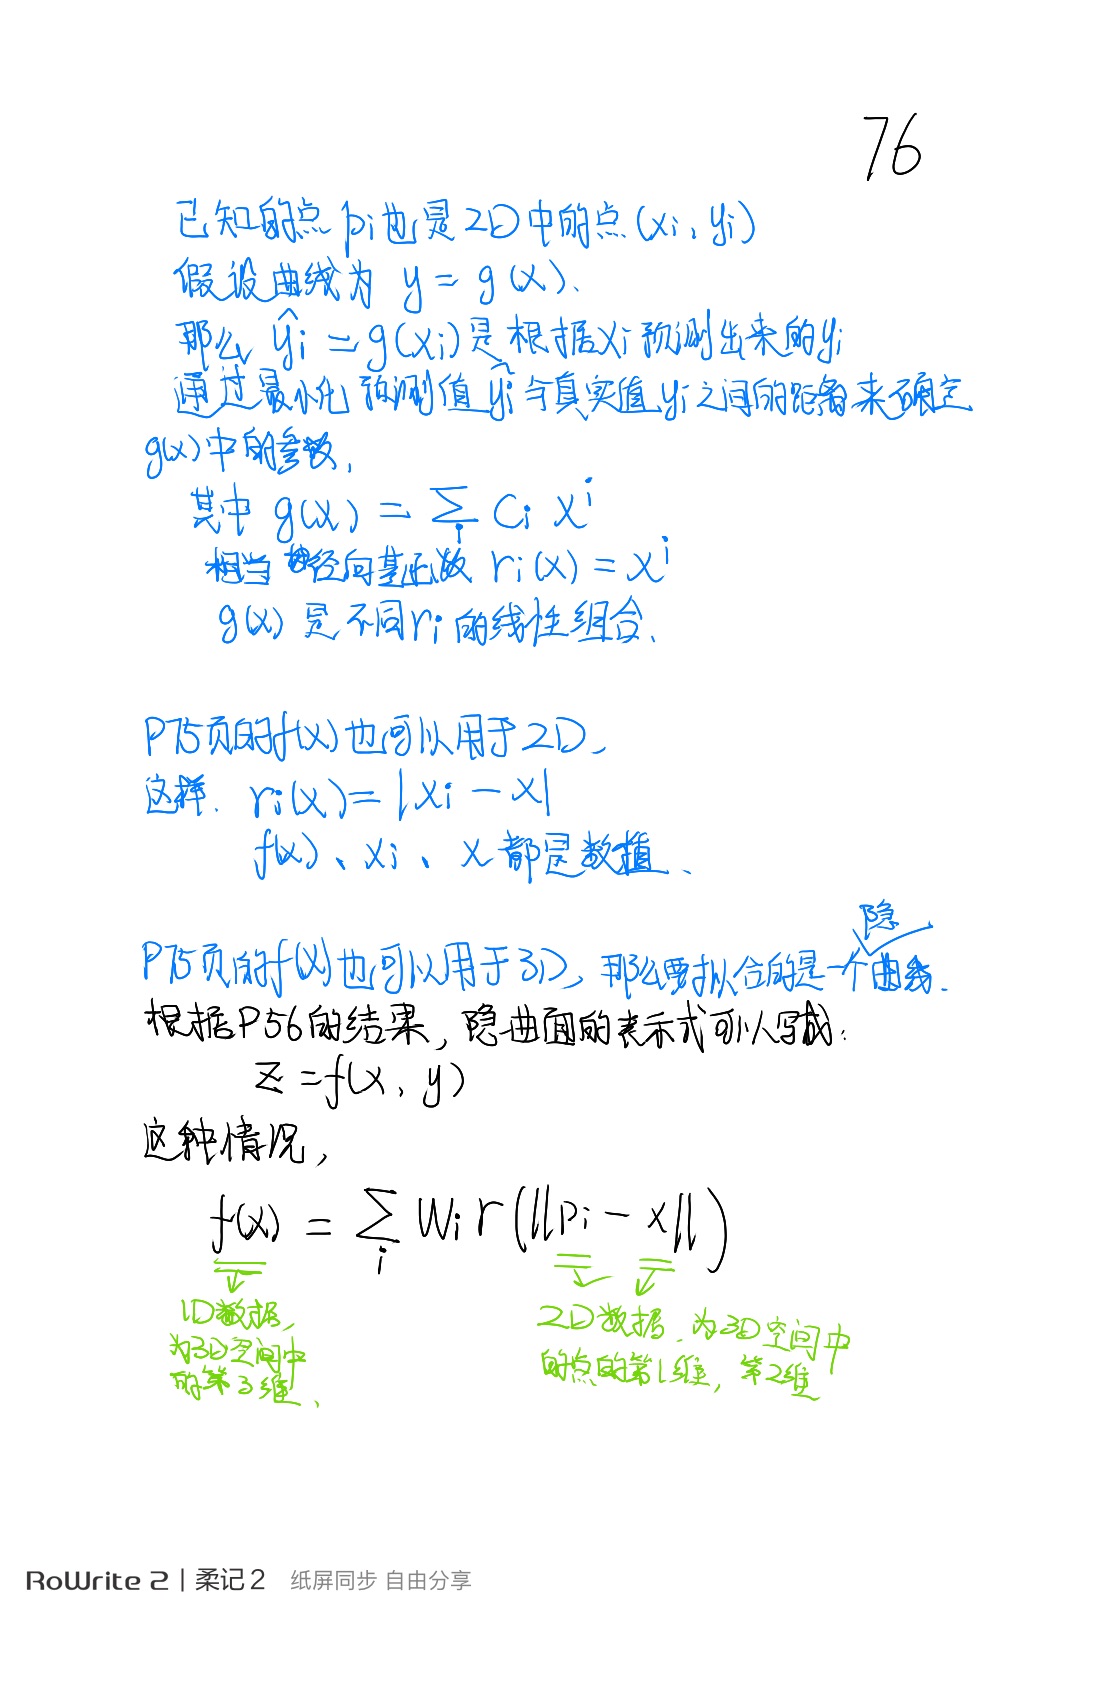 76
已知的点 pi 也是2D中的点(xi, yi)
假设曲线为 y = g(x).
那么 ŷi = g(xi)是根据xi预测出来的yi
通过最小化预测值ŷi与真实值yi之间的距离来确定
g(x)中的参数,
其中 g(x) = ∑i Ci x^i
相当 径向基函数 ri(x) = x^i
g(x) 是不同ri的线性组合.
P75页的f(x)也可以用于2D,
这样. ri(x) = |xi - x|
f(x)、xi、x都是数值.
隐
P75页的f(x)也可以用于3D, 那么要拟合的是一个曲线.
根据P56的结果, 隐曲面的表示式可以写成:
z = f(x, y)
这种情况,
f(x) = ∑i Wi r(||pi - x||)
1D数据,
为3D空间中
的第3维.
2D数据, 为3D空间中
的点的第1维, 第2维
RoWrite 2 | 柔记2 纸屏同步 自由分享